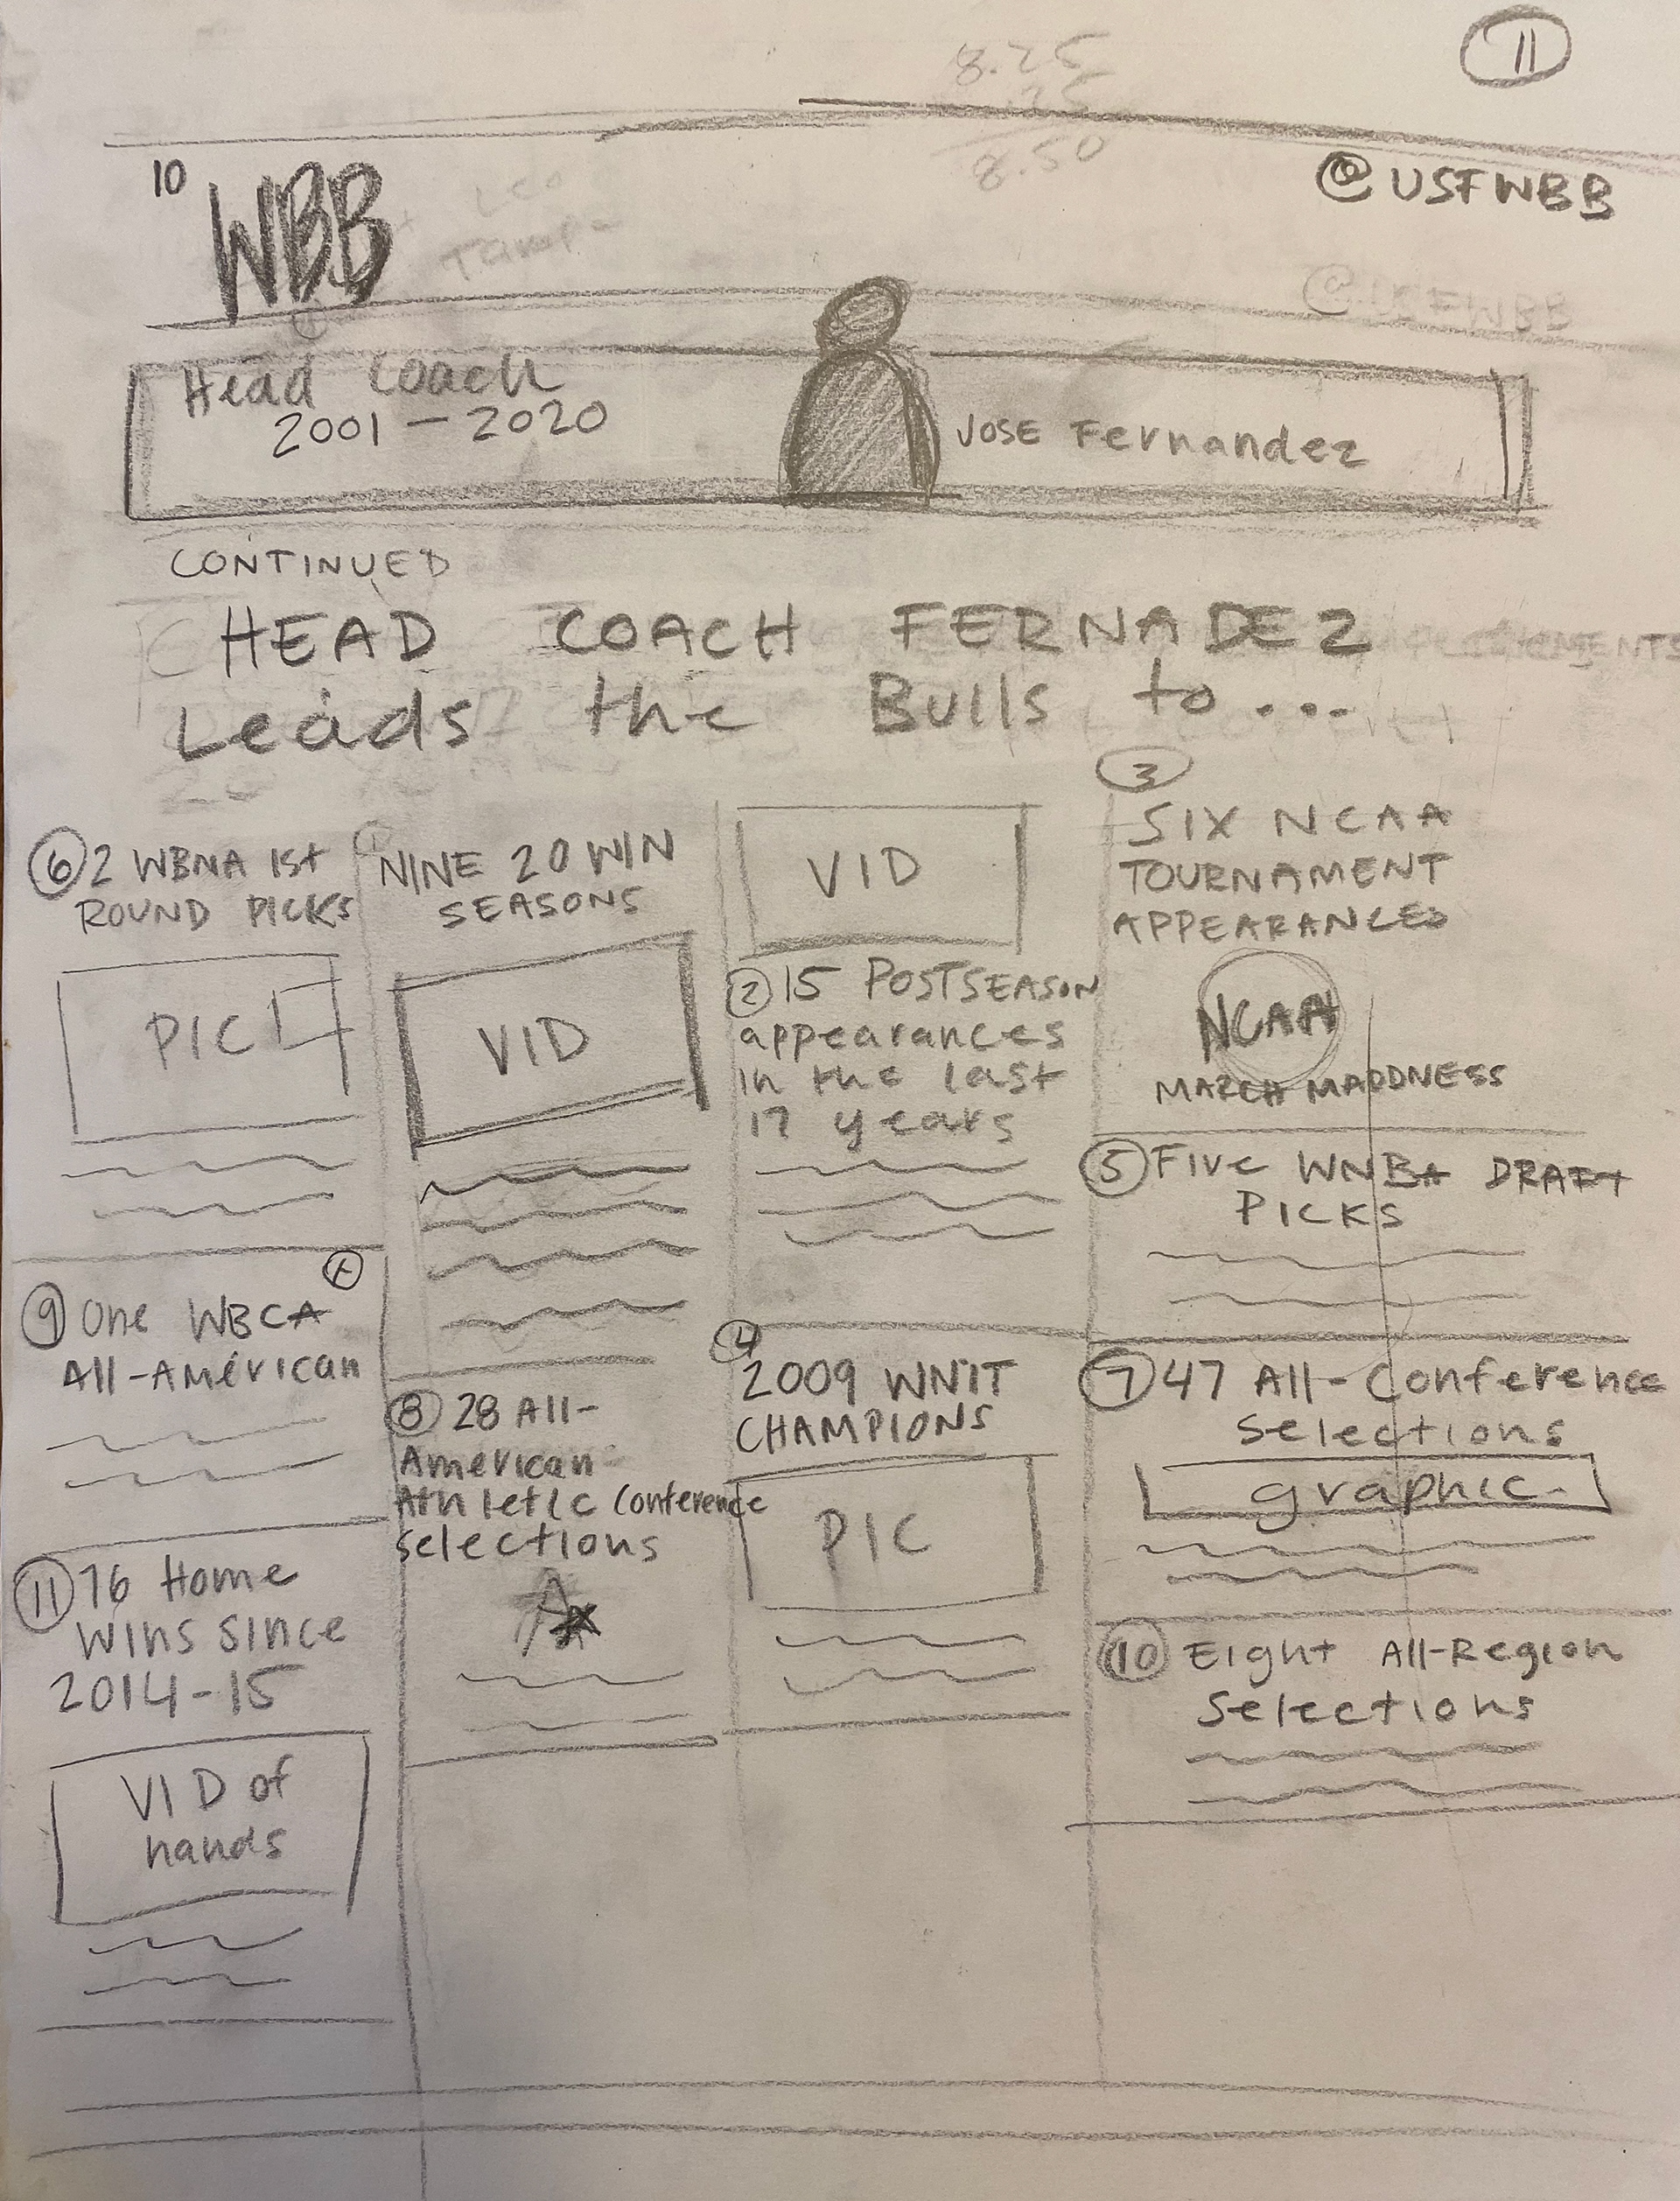 8.25
8.50
11
10
WBB
@USFWBB
Tampa
@USFWBB
Head Coach
2001 - 2020
JOSE Fernandez
CONTINUED
HEAD COACH FERNADEZ
Leads the Bulls to...
6 2 WBNA 1st
ROUND PICKS
PIC
9 One WBCA
All-American
11 76 Home
Wins Since
2014-15
VID of
hands
1 NINE 20 WIN
SEASONS
VID
8 28 All-
American
Athletic Conference
selections
VID
2 15 POSTSEASON
appearances
in the last
17 years
4
2009 WNIT
CHAMPIONS
PIC
3
SIX NCAA
TOURNAMENT
APPEARANCES
NCAA
MARCH MADDNESS
5 Five WNBA DRAFT
PICKS
7 47 All-Conference
Selections
graphic
10 Eight All-Region
Selections